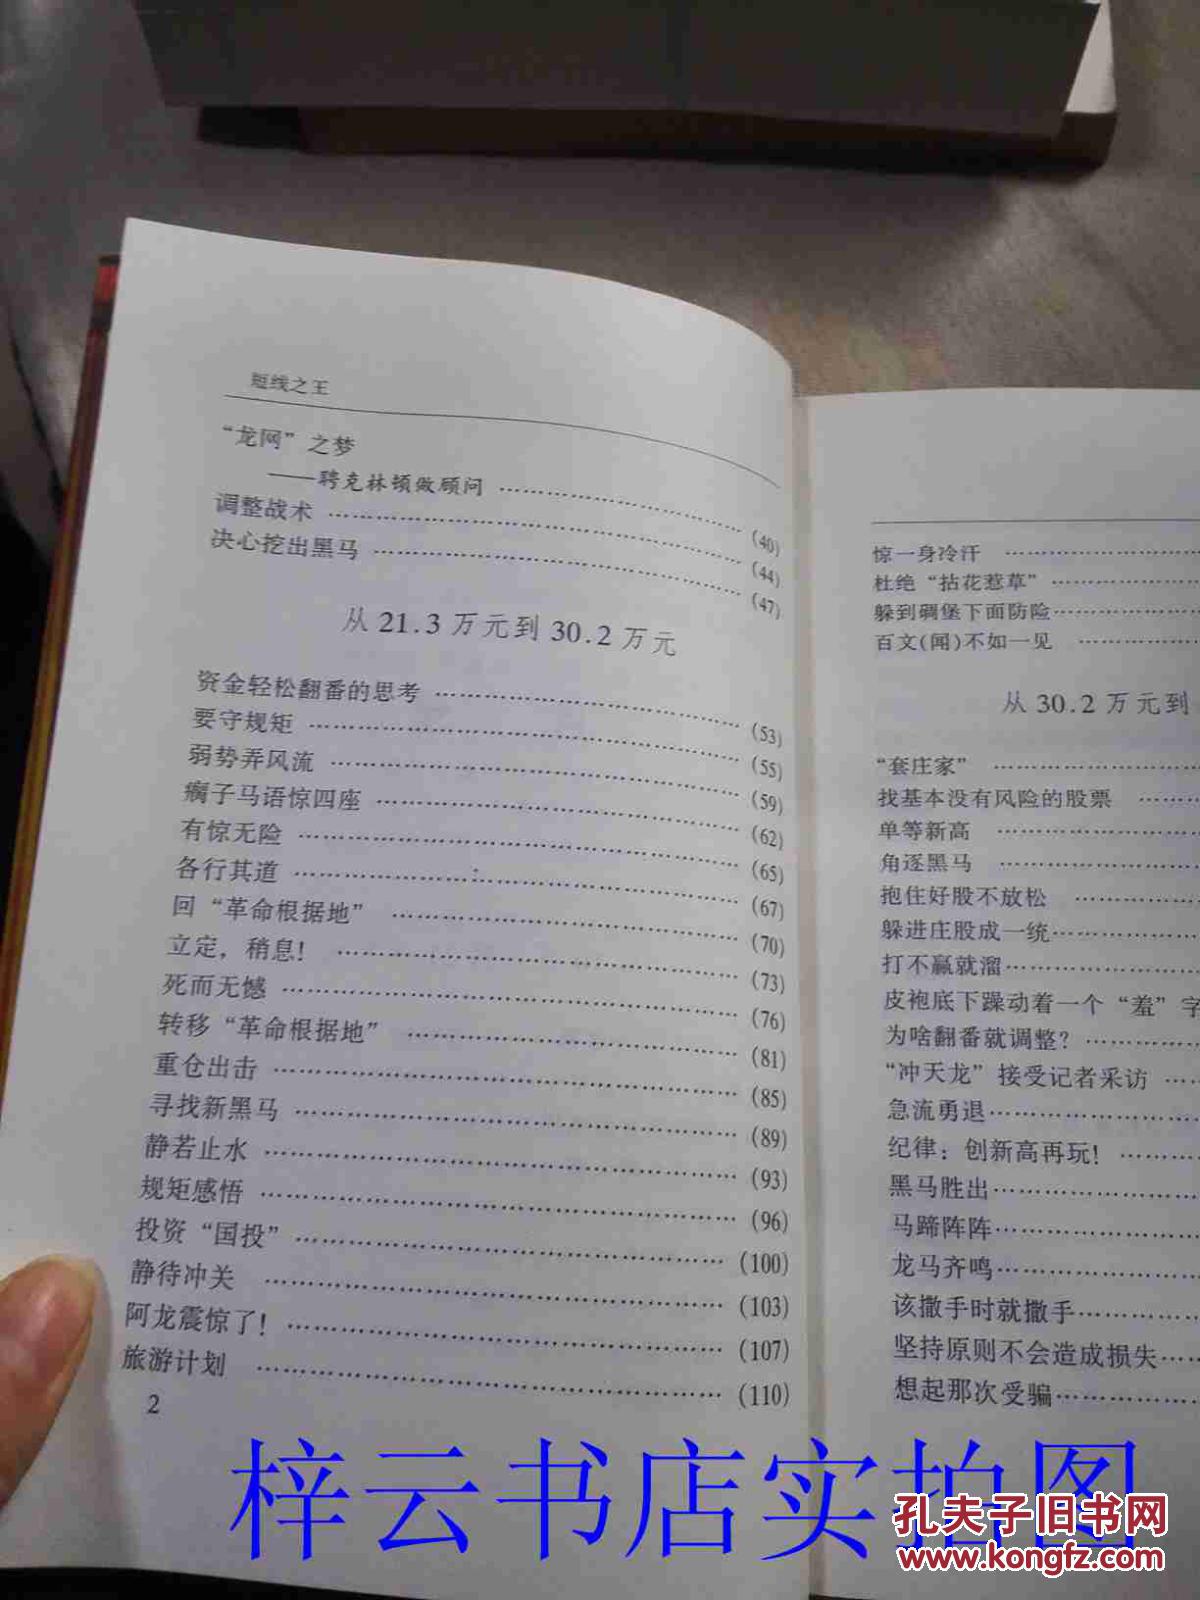 短线之王
“龙网”之梦
——聘克林顿做顾问 ……………………………… (40)
调整战术 ……………………………… (44)
决心挖出黑马 ……………………………… (47)
从 21.3 万元到 30.2 万元
资金轻松翻番的思考 ……………………………… (53)
要守规矩 ……………………………… (55)
弱势弄风流 ……………………………… (59)
瘸子马语惊四座 ……………………………… (62)
有惊无险 ……………………………… (65)
各行其道 ……………………………… (67)
回“革命根据地” ……………………………… (70)
立定，稍息！ ……………………………… (73)
死而无憾 ……………………………… (76)
转移“革命根据地” ……………………………… (81)
重仓出击 ……………………………… (85)
寻找新黑马 ……………………………… (89)
静若止水 ……………………………… (93)
规矩感悟 ……………………………… (96)
投资“国投” ……………………………… (100)
静待冲关 ……………………………… (103)
阿龙震惊了！ ……………………………… (107)
旅游计划 ……………………………… (110)
2
惊一身冷汗 ………………
杜绝“拈花惹草” ………………
躲到碉堡下面防险 ………………
百文(闻)不如一见 ………………
从 30.2 万元到
“套庄家” ………………
找基本没有风险的股票 ………
单等新高 ………………
角逐黑马 ………………
抱住好股不放松 ………………
躲进庄股成一统 ………………
打不赢就溜 ………………
皮袍底下躁动着一个“羞”字
为啥翻番就调整？ ………………
“冲天龙”接受记者采访 ……
急流勇退 ………………
纪律：创新高再玩！ ………
黑马胜出 ………………
马蹄阵阵 ………………
龙马齐鸣 ………………
该撒手时就撒手 ………………
坚持原则不会造成损失 ……
想起那次受骗 ………………
梓云书店实拍图
孔夫子旧书网
www.kongfz.com